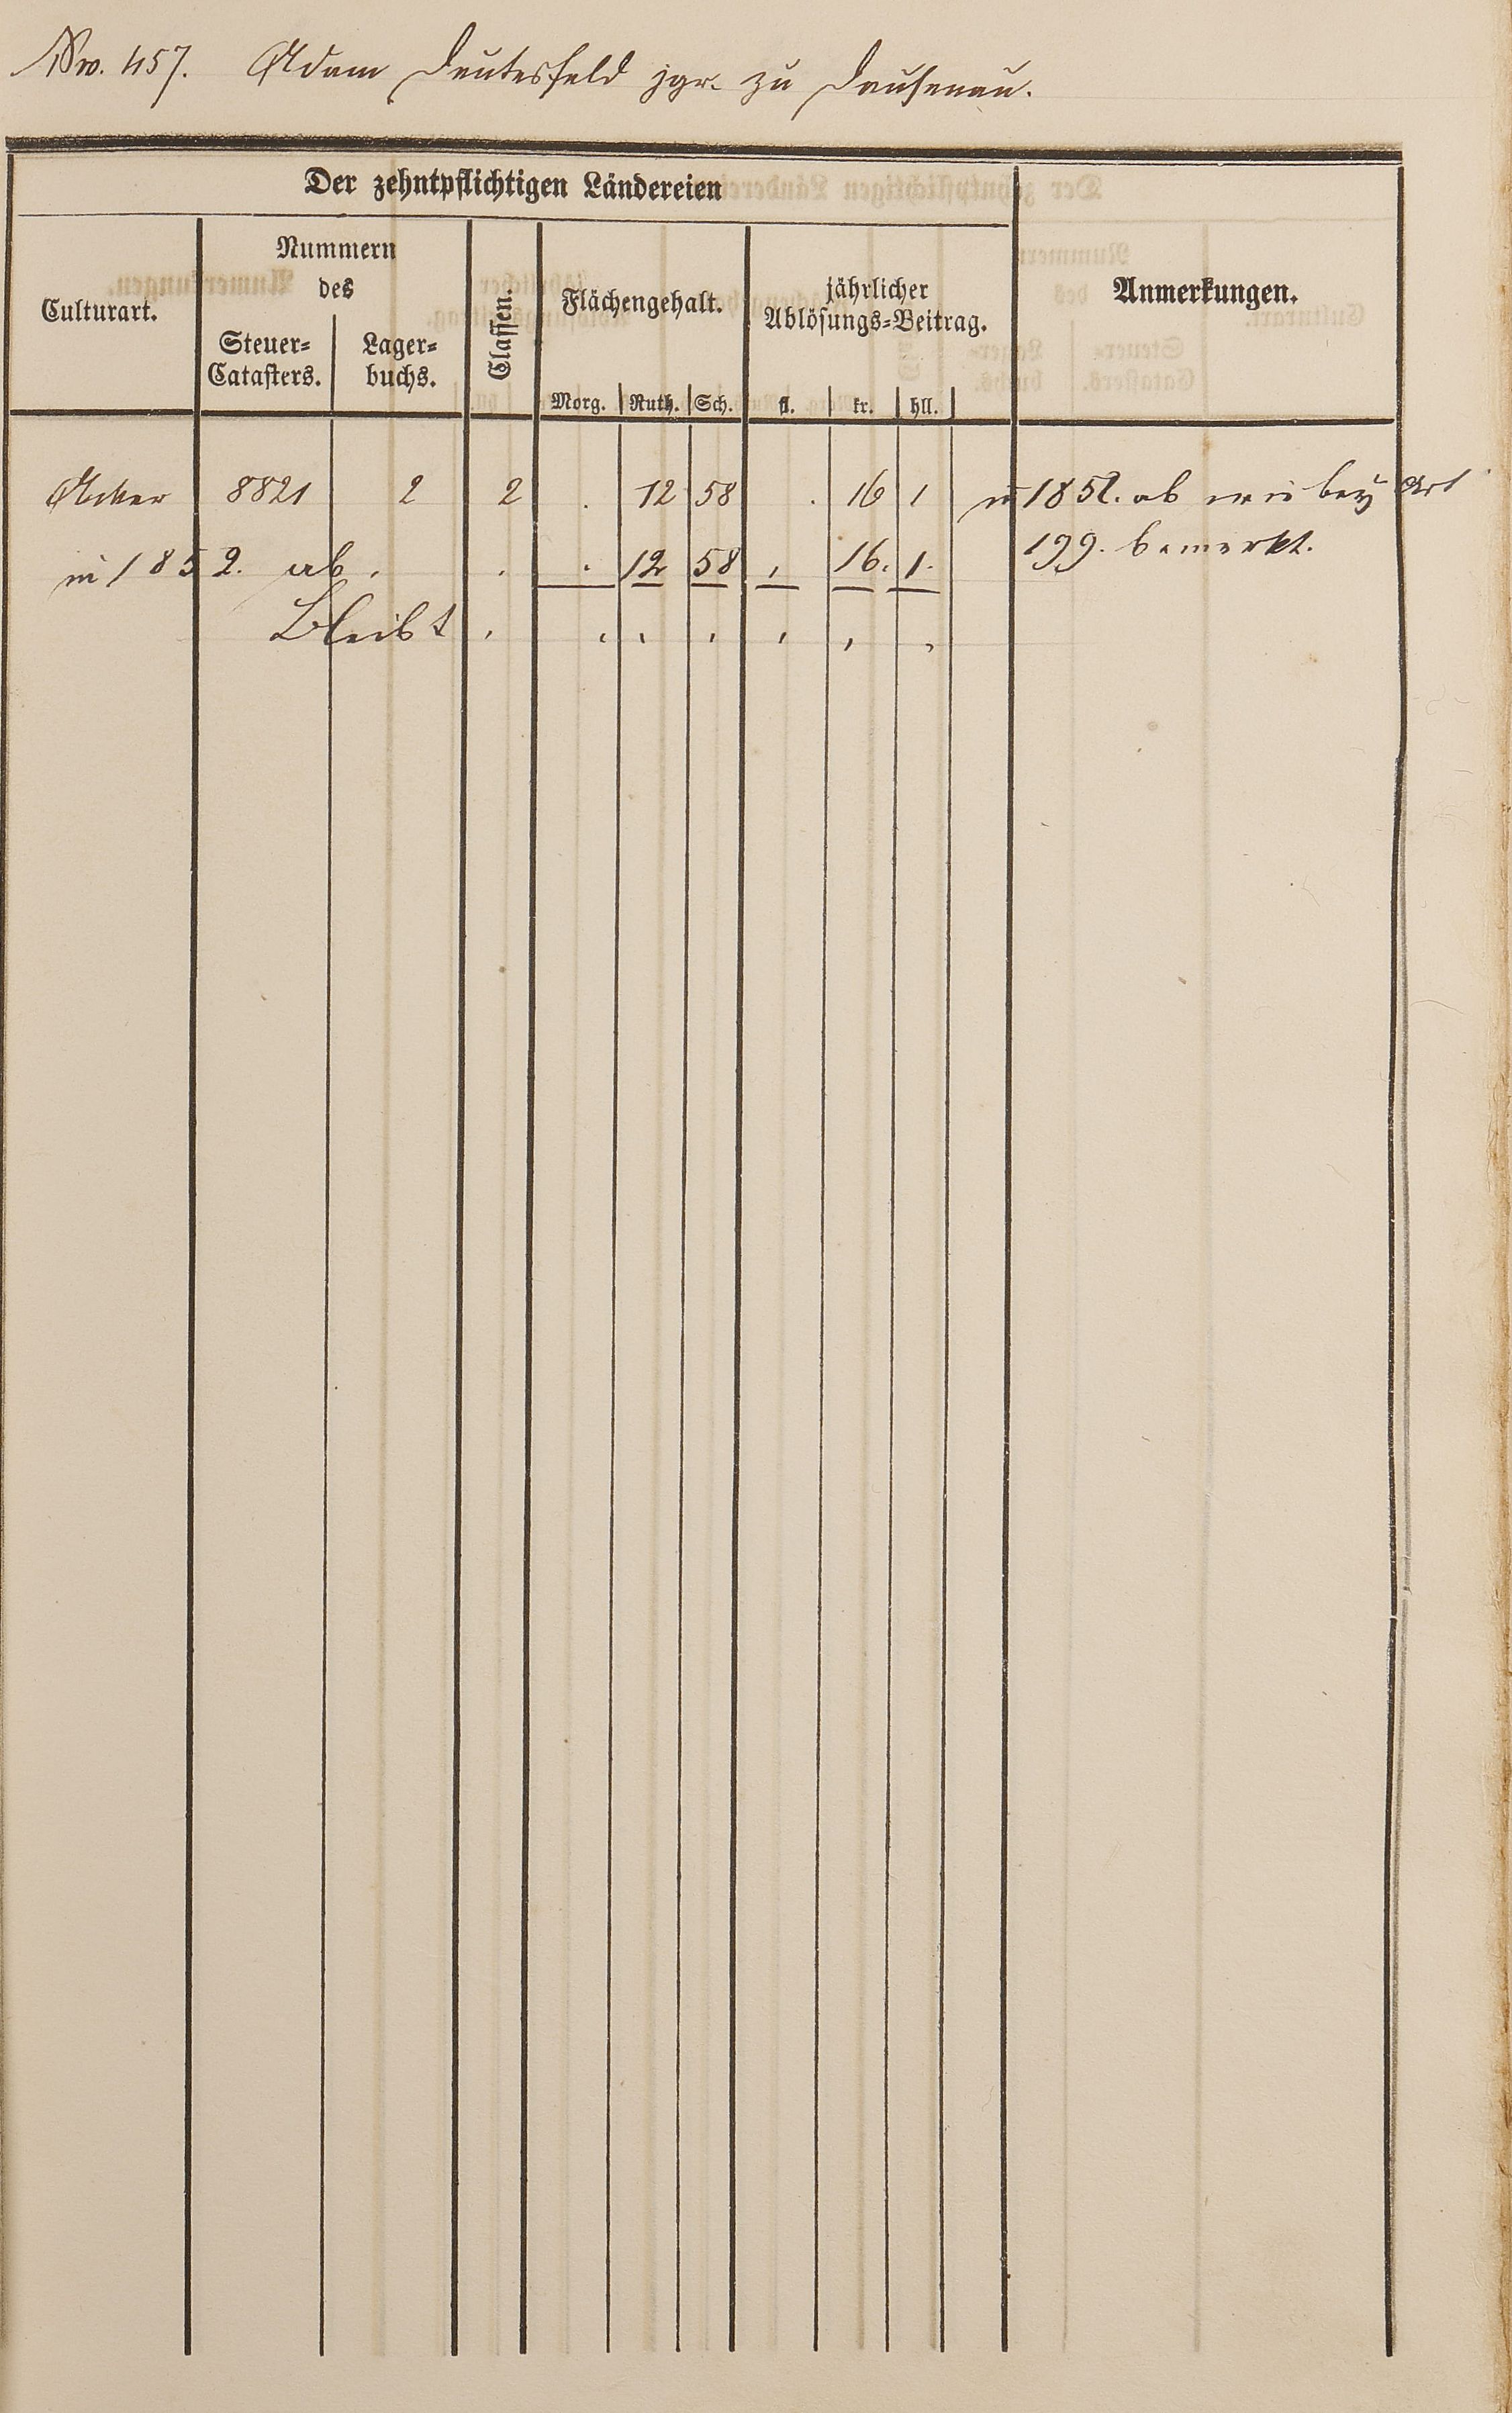 Nro. 457. Adam Deutesfeld jgr. zu Dausenau.
Der zehntpflichtigen Ländereien
Culturart.
Nummern
des
Steuer=
Catasters.
Lager=
buchs.
Classen.
Flächengehalt.
Morg. Ruth. Sch.
jährlicher
Ablösungs=Beitrag.
fl. kr. hll.
Anmerkungen.
Acker 8821 2 2 . 12 58 . 16 1 in 1852. ab wie bey Art
in 1852. ab . . . 12 58 , 16. 1. 199. bemerkt.
Bleibt , , , , , , ,